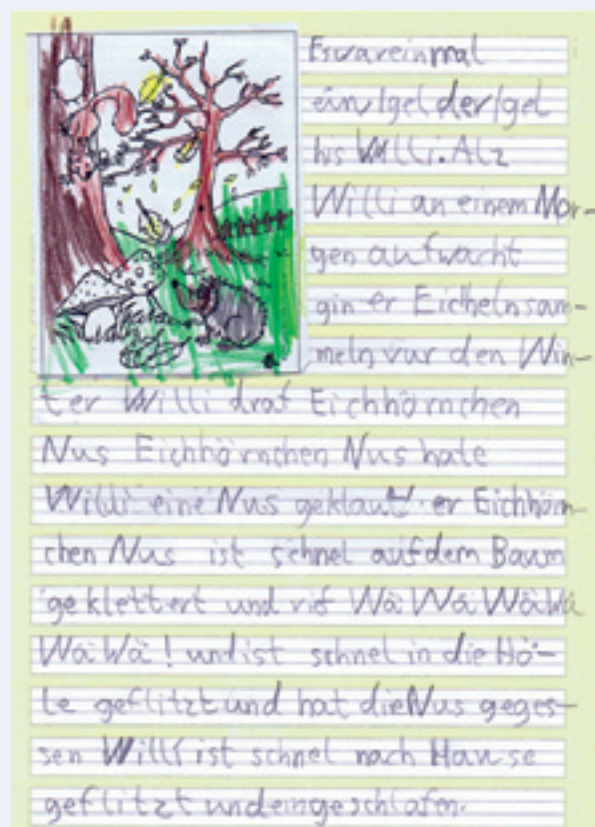 Es war einmal
ein Igel der Igel
his Willi. Alz
Willi an einem Mor-
gen aufwacht
gin er Eicheln sam-
meln vur den Win-
ter Willi draf Eichhörnchen
Nus Eichhörnchen Nus hate
Willi eine Nus geklaut. er Eichhörn-
chen Nus ist schnel auf dem Baum
geklettert und rif Wä Wä Wä Wä
Wä Wä! und ist schnel in die Hö-
le geflitzt und hat die Nus geges-
sen Willi ist schnel nach Hause
geflitzt und eingeschlafen.